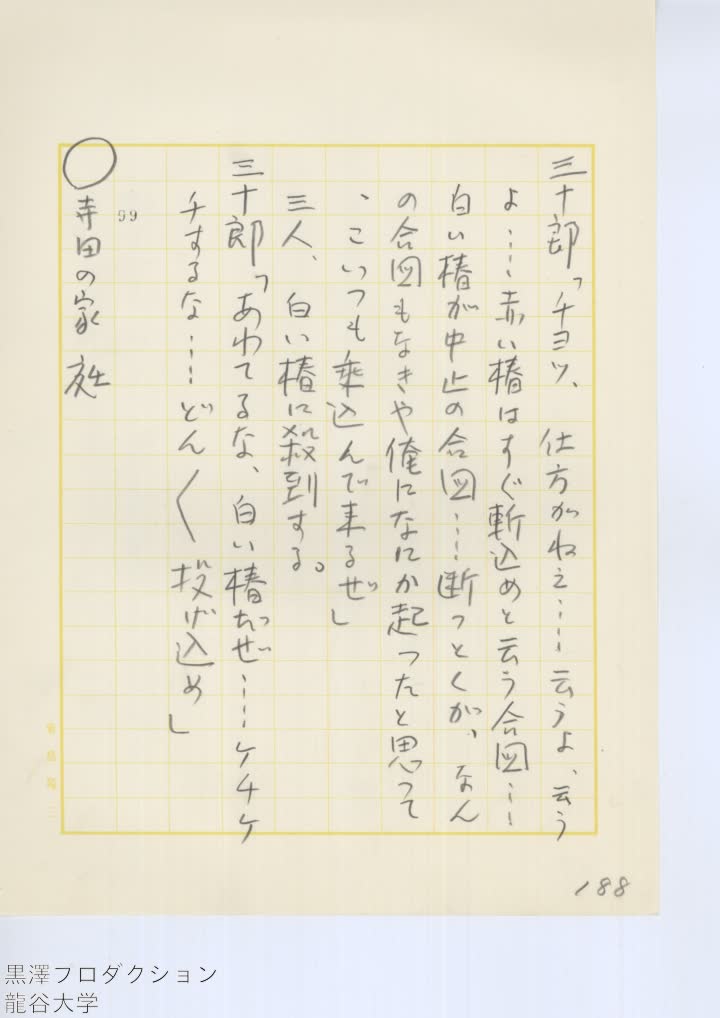 三十郎「チヨツ、仕方がねえ……云うよ、云う
よ……赤い椿はすぐ斬込めと云う合図……
白い椿が中止の合図……断つとくが、なん
の合図もなきや俺になにか起つたと思つて
、こいつも乗込んで来るぜ」
三人、白い椿に殺到する。
三十郎「あわてるな、白い椿だぜ……ケチケ
チするな……どん〱投げ込め」
99
○寺田の家 庭
188
黒澤プロダクション
龍谷大学